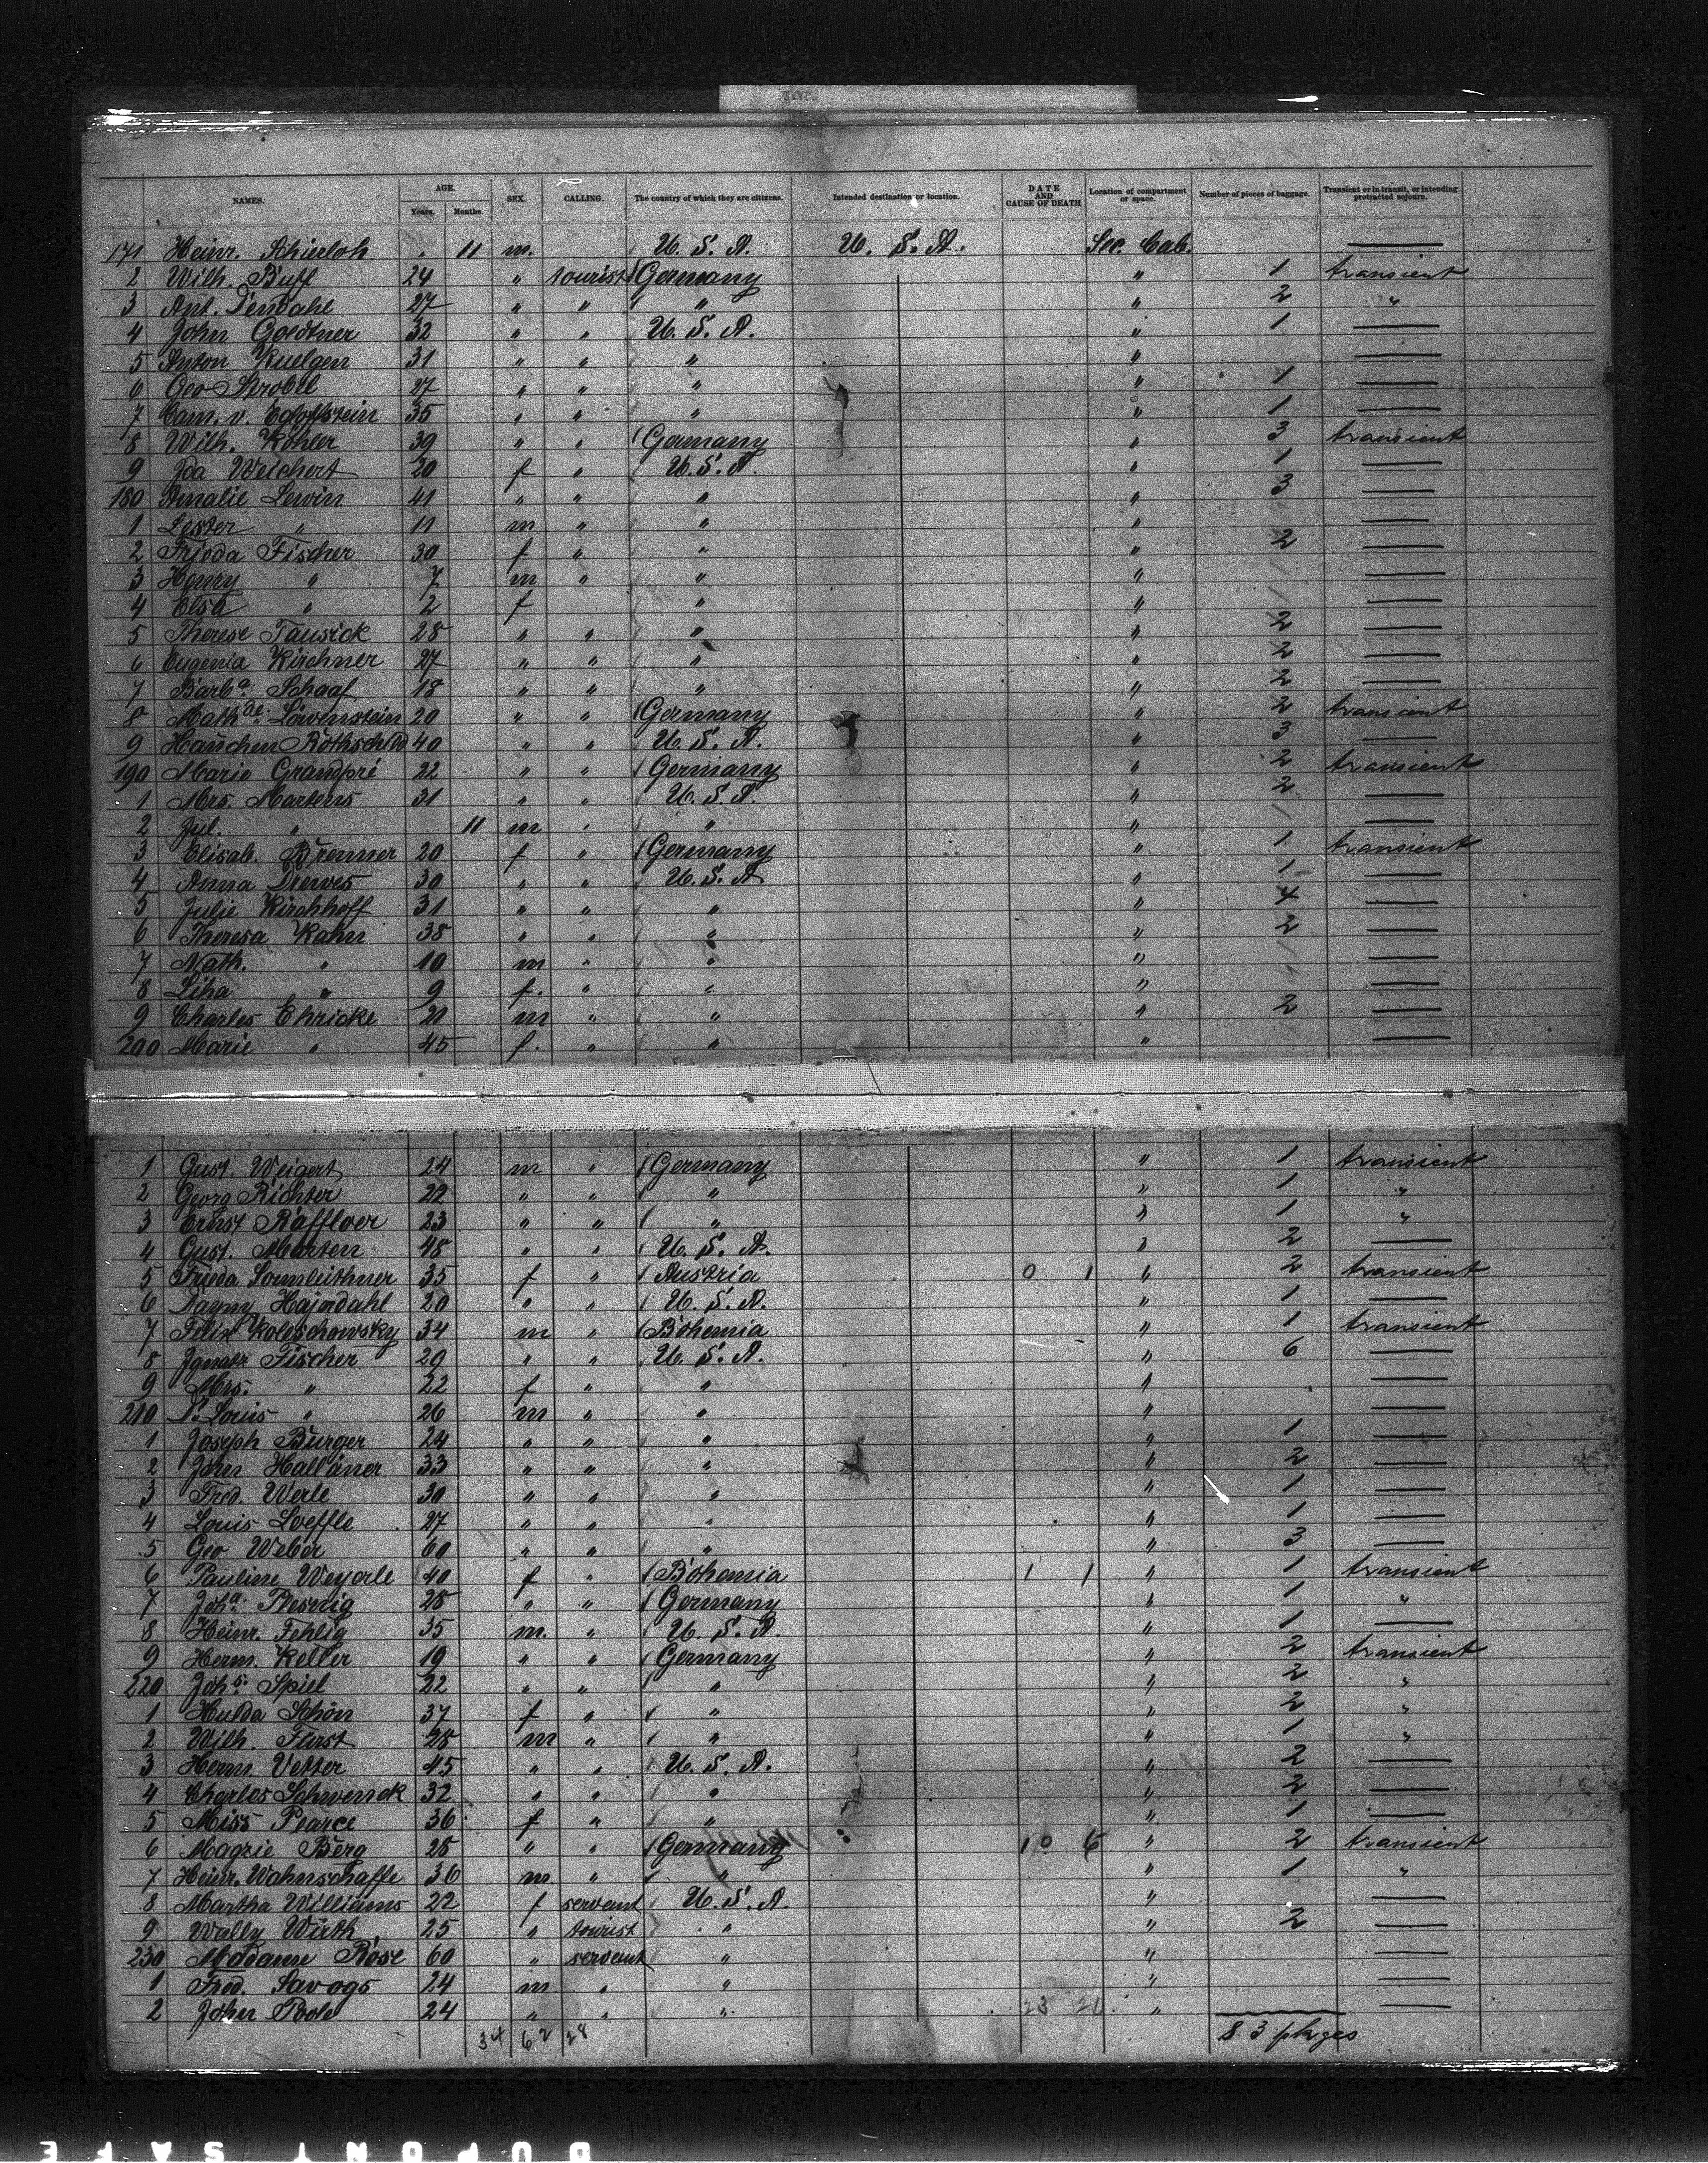 NAMES. AGE. Years. Months. SEX. CALLING. The country of which they are citizens. Intended destination or location. DATE AND CAUSE OF DEATH Location of compartment or space. Number of pieces of baggage. Transient or in transit, or intending protracted sojourn.
171 Heinr. Schierloh " 11 m. U. S. A. U. S. A. Sec. Cab. —
2 Wilh. Buff 24 " tourist Germany " 1 transient
3 Ant. Dendahl 27 " " " " 2 "
4 John Goldtner 32 " " U. S. A. " 1 —
5 Anton Kuelgen 31 " " " " —
6 Geo Strobel 27 " " " " 1 —
7 Cam. v. 35 " " " " 1 —
8 Wilh. Köhler 39 " " Germany " 3 transient
9 Ida Weichert 20 f " U. S. A. " 1 —
180 Amalie Lewin 41 " " " " 3 —
1 Lester " 11 m " " " —
2 Frieda Fischer 30 f " " " 2 —
3 Henry " 7 m " " " —
4 Elsa " 2 f " " —
5 Therese Tausick 28 " " " " 2 —
6 Eugenia Kirchner 27 " " " " 2 —
7 Barba. Schaaf 18 " " " " 2 —
8 Mathde. Löwenstein 20 " " Germany " 2 transient
9 Hanchen Rothschild 40 " " U. S. A. " 3 —
190 Marie Grandpré 22 " " Germany " 2 transient
1 Mrs. Martens 31 " " U. S. A. " 2 —
2 Jul. " 11 m " " " —
3 Elisab. Brenner 20 f " Germany " 1 transient
4 Anna Drewes 30 " " U. S. A " 1 —
5 Julie Kirchhoff 31 " " " " 4 —
6 Theresa Kahn 38 " " " " 2 —
7 Nath. " 10 m " " " —
8 Liha " 9 f. " " " —
9 Charles Ehricke 21 m " " " 2 —
200 Marie " 45 f. " " " —
1 Gust. Weigert 24 m " Germany " 1 transient
2 Georg Richter 22 " " " " 1 "
3 Ernst Raffloer 23 " " " " 1 "
4 Gust. Marten 48 " " U. S. A. " 2 —
5 Frieda Sonnleithner 35 f " Austria 0 1 " 2 transient
6 Dagny Hajordahl 20 " " U. S. A. " 1 —
7 Felix Koleschowsky 34 m " Bohemia " 1 transient
8 Ignatz Fischer 29 " " U. S. A. " 6 —
9 Mrs. " 22 f " " " —
210 Dr. Louis " 26 m " " " —
1 Joseph Burger 24 " " " " 1 —
2 John Halläner 33 " " " " 2 —
3 Fred. Werle 30 " " " " 1 —
4 Louis Loeffle 27 " " " " 1 —
5 Geo Weber 60 " " " " 3 —
6 Pauline Weyerle 40 f " Bohemia 1 1 " 1 transient
7 Joha. 28 " " Germany " 1 "
8 Heinr. Fehlig 35 m. " U. S. A. " 1 —
9 Herm. Keller 19 " " Germany " 2 transient
220 Johs. Spiel 22 " " " " 2 "
1 Hulda Schön 37 f " " " 2 "
2 Wilh. Fürst 28 m " " " 1 "
3 Herm Vetter 45 " " U. S. A. " 2 —
4 Charles Schwenck 32 " " " " 2 —
5 Miss Pearce 36 f " " " 1 —
6 Magzie Berg 28 " " Germany 10 6 " 2 transient
7 Heinr. Wahnschaffe 36 m " " " 1 "
8 Martha Williams 22 f servant U. S. A. " —
9 Wally Würth 25 " tourist " " 2 —
230 Madame Rose 60 " servant " " —
1 Fred. Savogs 24 m " " " —
2 John Bole 24 " " " 23 21 " —
34 62 28 83 pkges
DUPONT SAFE